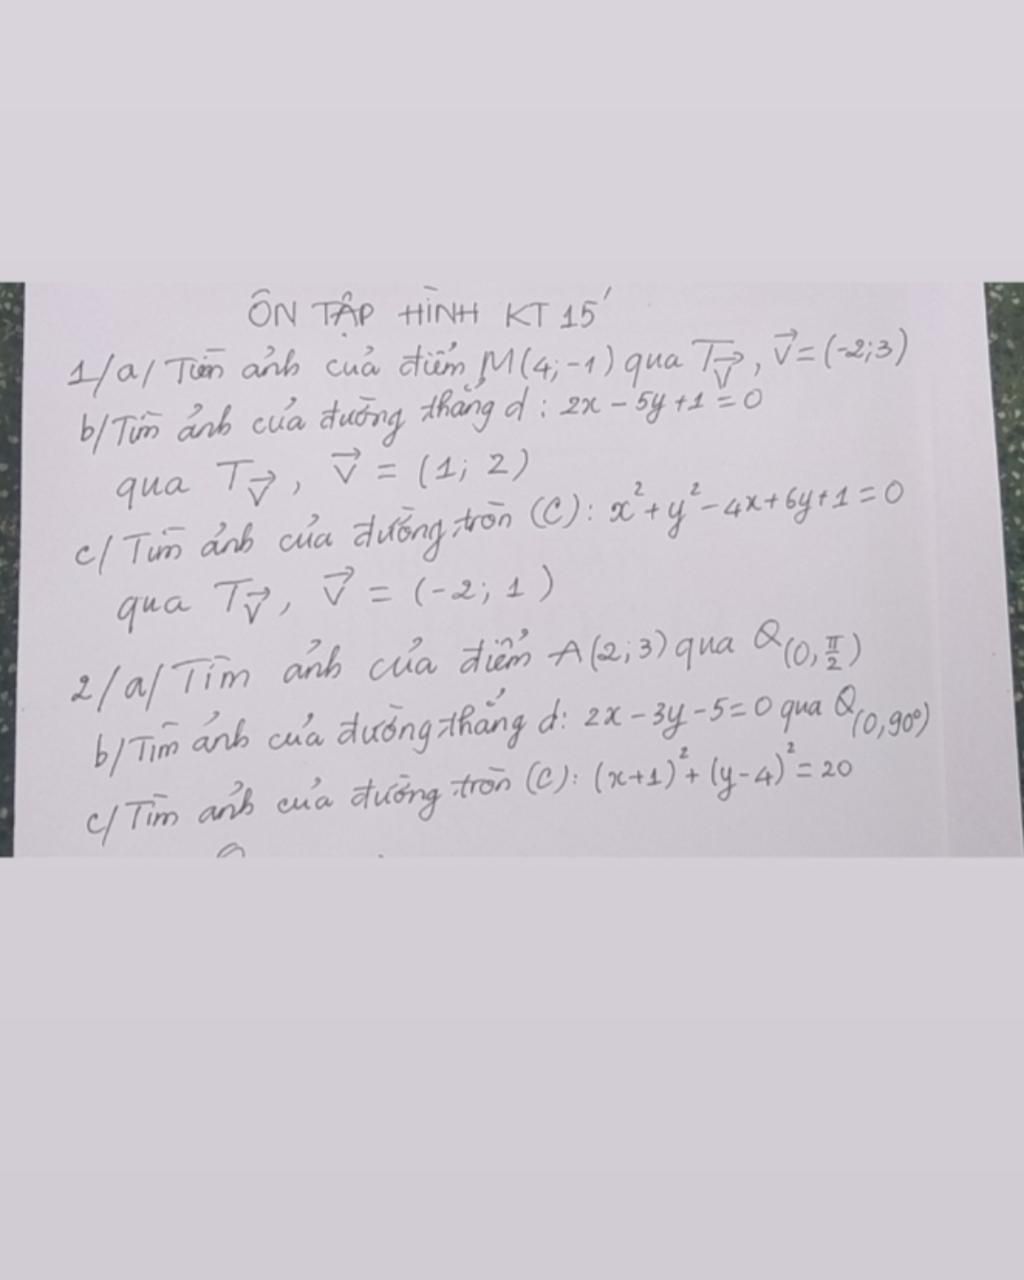 ÔN TẬP HÌNH KT 15'
1/a/ Tìm ảnh của điểm M(4;-1) qua T_v⃗, v⃗=(-2;3)
b/ Tìm ảnh của đường thẳng d: 2x - 5y + 1 = 0
qua T_v⃗, v⃗ = (1; 2)
c/ Tìm ảnh của đường tròn (C): x² + y² - 4x + 6y + 1 = 0
qua T_v⃗, v⃗ = (-2; 1)
2/a/ Tìm ảnh của điểm A(2;3) qua Q_(0, π/2)
b/ Tìm ảnh của đường thẳng d: 2x - 3y - 5 = 0 qua Q_(0, 90°)
c/ Tìm ảnh của đường tròn (C): (x+1)² + (y-4)² = 20